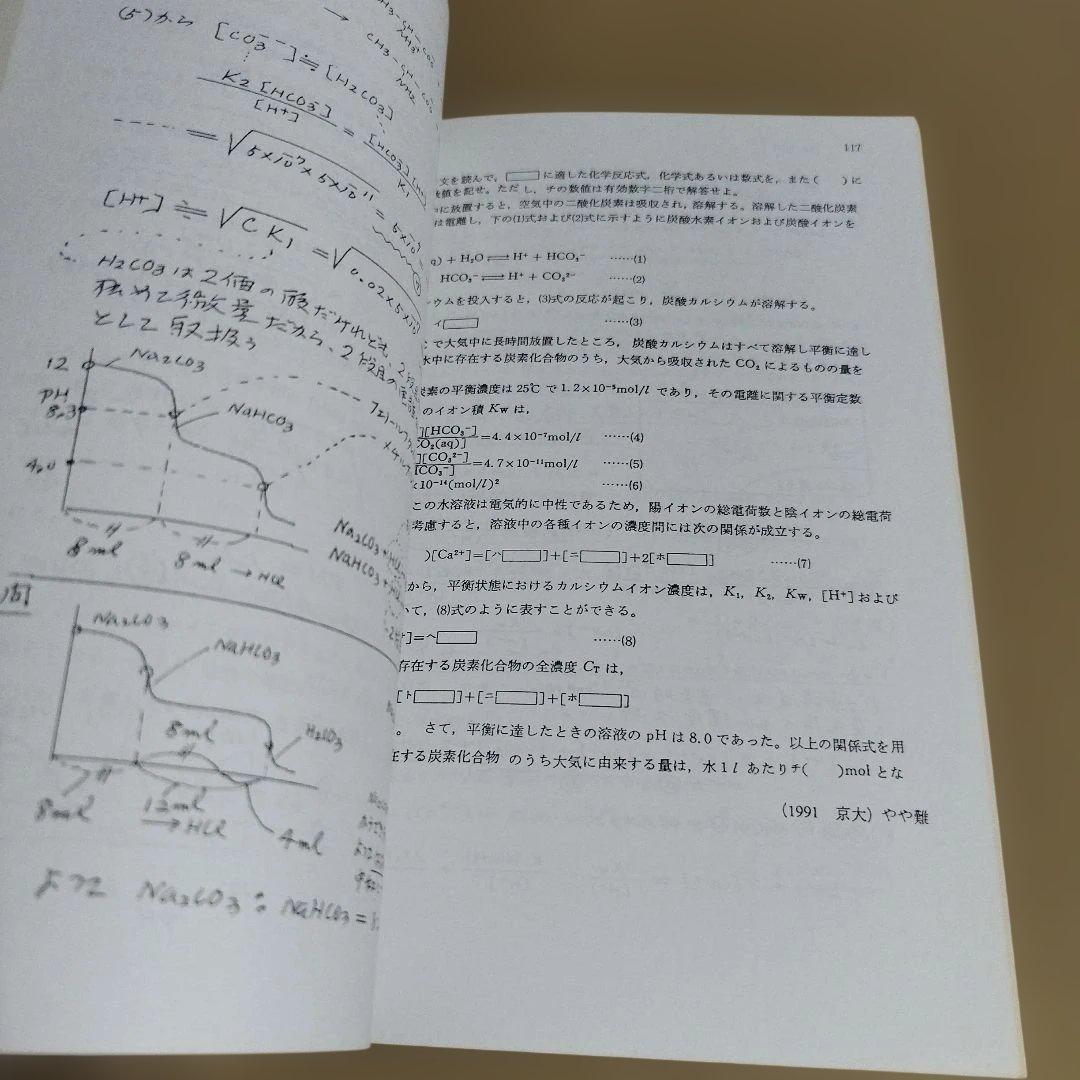 (5)から
[CO3--]≒[H2CO3]
CH3-CH-COO
NH2
K2[HCO3-]
[H+]
=
= √5×10-7×5×10-11
[H+]≒√CK1 = √0.02×5×10
H2CO3は2価の酸だけれども、2段
極めて微量だから、2段目の
として取扱う
12
Na2CO3
PH
8.3
NaHCO3
4.0
8ml
8ml →HCl
Na2CO3+HCl
NaHCO3+H
Na2CO3
NaHCO3
8ml
H2CO3
8ml
12ml
→HCl
4ml
よって Na2CO3:NaHCO3=
117
文を読んで，□に適した化学反応式，化学式あるいは数式を，また(　)に
数値を記せ。ただし，チの数値は有効数字二桁で解答せよ。
に放置すると，空気中の二酸化炭素は吸収され，溶解する。溶解した二酸化炭素
は電離し，下の(1)式および(2)式に示すように炭酸水素イオンおよび炭酸イオンを
q)+H₂O⇌H⁺+HCO₃⁻ ……(1)
HCO₃⁻⇌H⁺+CO₃²⁻ ……(2)
ウムを投入すると，(3)式の反応が起こり，炭酸カルシウムが溶解する。
イ□ ……(3)
で大気中に長時間放置したところ，炭酸カルシウムはすべて溶解し平衡に達し
水中に存在する炭素化合物のうち，大気から吸収されたCO₂によるものの量を
炭素の平衡濃度は25℃で1.2×10⁻⁵mol/lであり，その電離に関する平衡定数
のイオン積Kwは，
][HCO₃⁻]
O₂(aq)] =4.4×10⁻⁷mol/l ……(4)
][CO₃²⁻]
CO₃⁻] =4.7×10⁻¹¹mol/l ……(5)
×10⁻¹⁴(mol/l)² ……(6)
この水溶液は電気的に中性であるため，陽イオンの総電荷数と陰イオンの総電荷
考慮すると，溶液中の各種イオンの濃度間には次の関係が成立する。
)[Ca²⁺]=[ハ□]+[ニ□]+2[ホ□] ……(7)
から，平衡状態におけるカルシウムイオン濃度は，K₁，K₂，Kw，[H⁺]および
いて，(8)式のように表すことができる。
⁺]=ヘ□ ……(8)
存在する炭素化合物の全濃度C_Tは，
[ト□]+[ニ□]+[ホ□]
。　さて，平衡に達したときの溶液のpHは8.0であった。以上の関係式を用
在する炭素化合物のうち大気に由来する量は，水1lあたりチ(　)molとな
(1991　京大)やや難